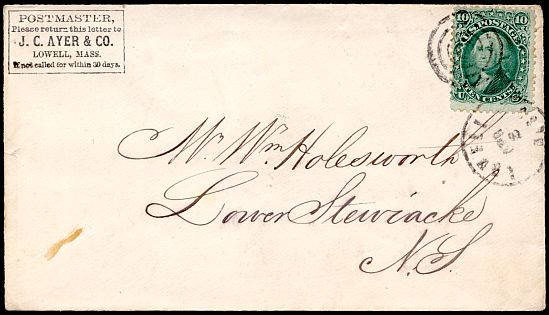 POSTMASTER,
Please return this letter to
J. C. AYER & CO.
LOWELL, MASS.
If not called for within 30 days.
10 10
U.S. POSTAGE
TEN CENTS
Mr. Wm Holesworth
Lower Stewiacke
N.S.